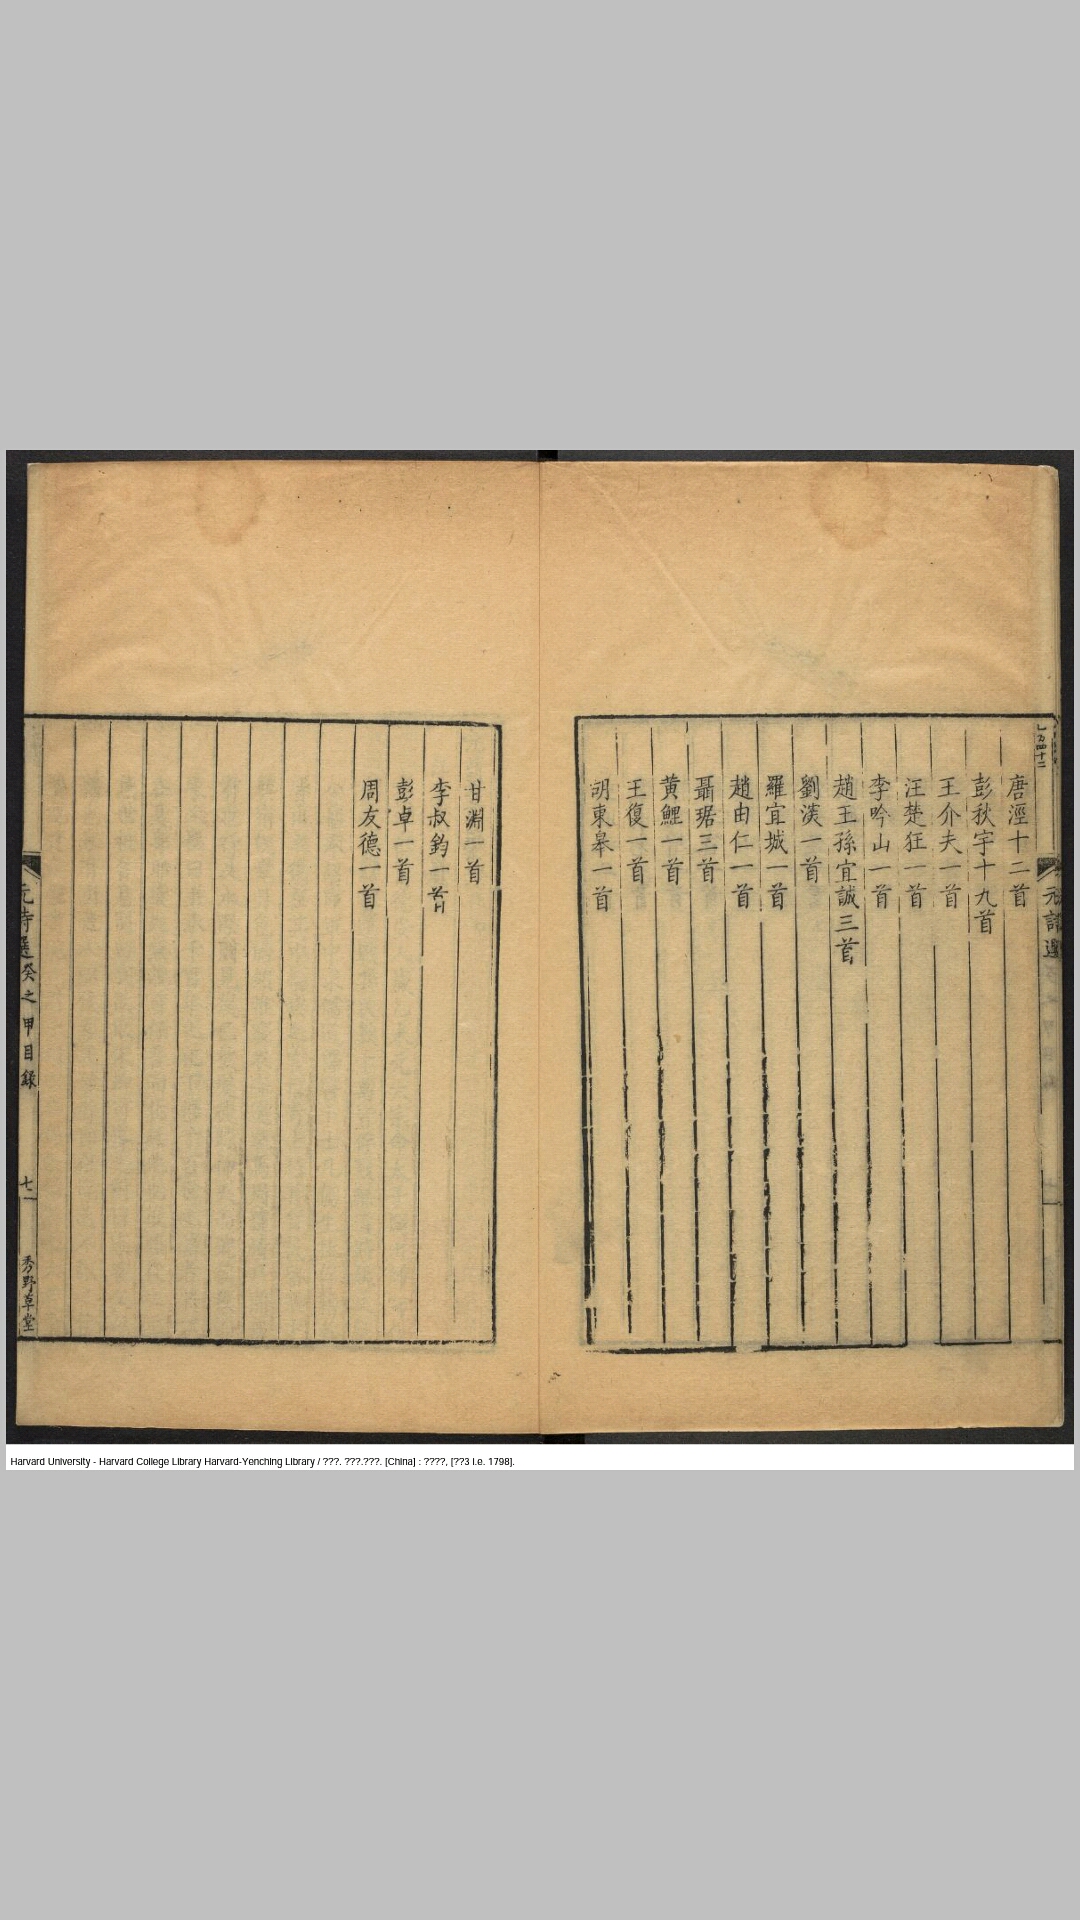 唐涇十二首
彭秋宇十九首
王介夫一首
汪楚狂一首
李吟山一首
趙王孫宜誠三首
劉渶一首
羅宜城一首
趙由仁一首
聶琚三首
黄鯉一首
王復一首
胡東皋一首
甘淵一首
李叔鈞一首
彭卓一首
周友德一首
元詩選 癸之甲目録 七 秀野草堂
Harvard University - Harvard College Library Harvard-Yenching Library / ???. ???.???. [China] : ????, [??3 i.e. 1798].